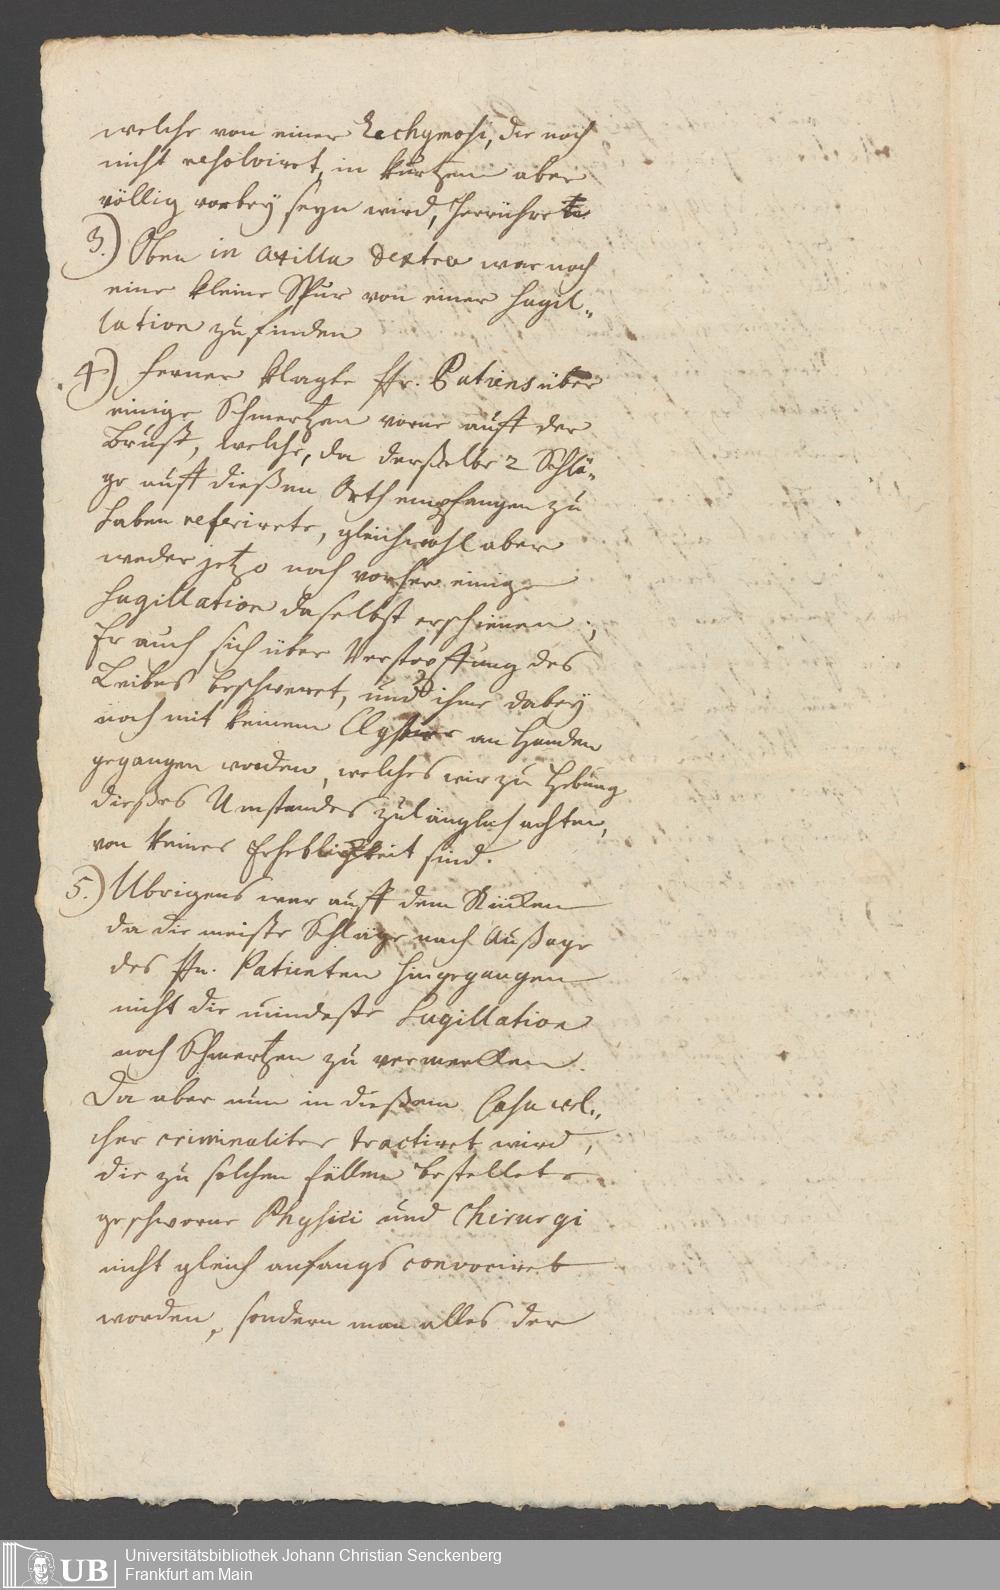 welche von einer Ecchymosi, die noch
nicht resolviret, in kurtzem aber
völlig vorbey seyn wird, herrührete
3.) Oben in axilla dextra war noch
eine kleine Spur von einer Sugil„
lation zu finden
4.) Ferner klagte Hr. Patiens über
einige Schmertzen vorne auff der
Brust, welche, da derselbe 2 Schlä„
ge auff dießen Orth empfangen zu
haben referirete, gleichwohl aber
weder jetzo noch vorher einige
Sugillation daselbst erschienen;
Er auch sich über Verstopffung des
Leibes beschweret, und ihme dabey
noch mit keinem Clystier an Handen
gegangen worden, welches wir zu Hebung
dießes Umstandes zulänglich achten,
von keiner Erheblichkeit sind.
5.) Ubrigens war auff dem Rücken
da die meiste Schläge nach Außage
des Hn. Patienten hingegangen
nicht die mindeste Sugillation
noch Schmertzen zu vermercken.
Da aber nun in dießem Casu wel„
cher criminaliter tractiret wird,
die zu solchen Fällen bestellete
geschworne Physici und Chirurgi
nicht gleich anfangs convociret
worden, sondern man alles der
UB
Universitätsbibliothek Johann Christian Senckenberg
Frankfurt am Main